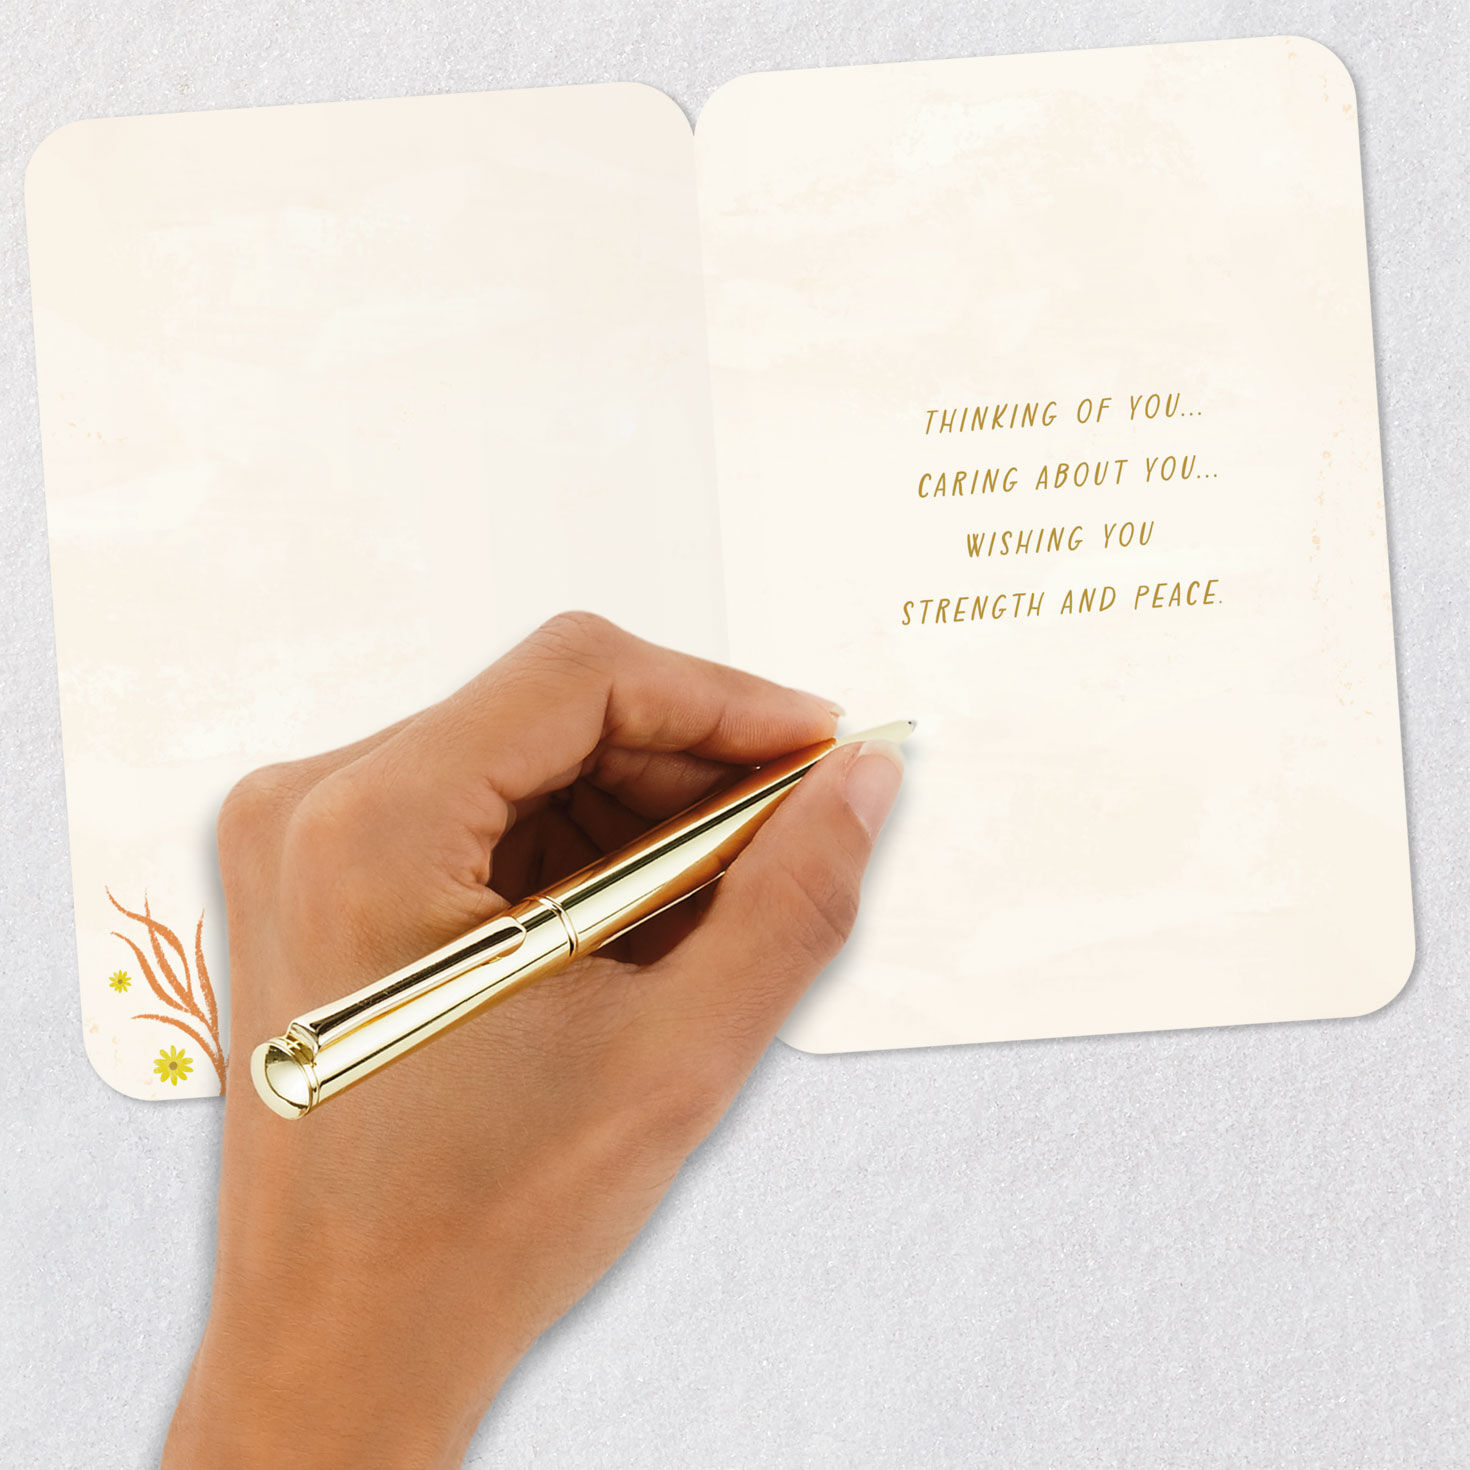 THINKING OF YOU...
CARING ABOUT YOU...
WISHING YOU
STRENGTH AND PEACE.